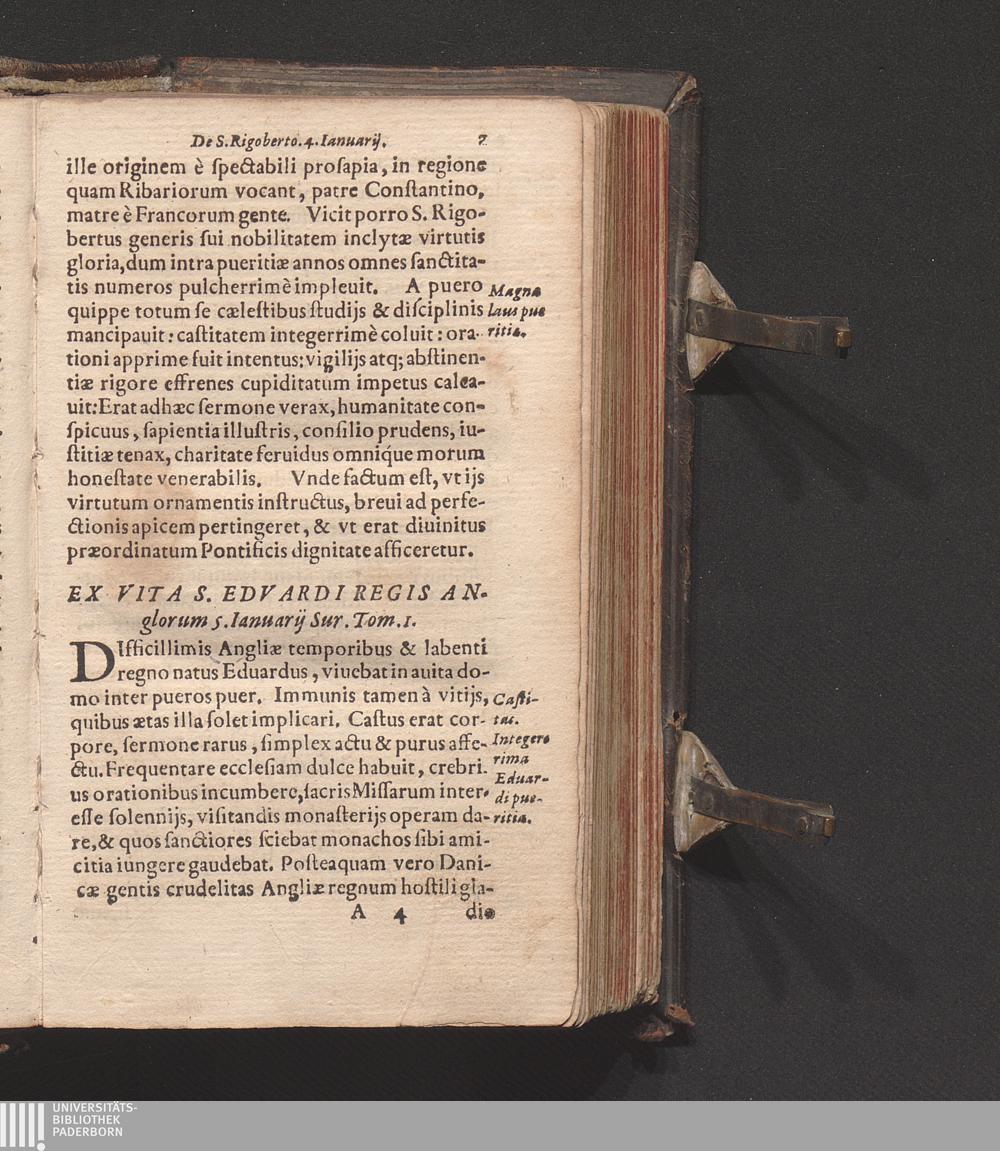 De S. Rigoberto. 4. Ianuarij. 7
ille originem è ſpectabili proſapia, in regione
quam Ribariorum vocant, patre Conſtantino,
matre è Francorum gente. Vicit porro S. Rigo-
bertus generis ſui nobilitatem inclytæ virtutis
gloria, dum intra pueritiæ annos omnes ſanctita-
tis numeros pulcherrimè impleuit. A puero
quippe totum ſe cæleſtibus ſtudijs & diſciplinis
mancipauit: caſtitatem integerrimè coluit: ora-
tioni apprime fuit intentus: vigilijs atq; abſtinen-
tiæ rigore effrenes cupiditatum impetus calca-
uit: Erat adhæc ſermone verax, humanitate con-
ſpicuus, ſapientia illuſtris, conſilio prudens, iu-
ſtitiæ tenax, charitate feruidus omniq́ue morum
honeſtate venerabilis. Vnde factum eſt, vt ijs
virtutum ornamentis inſtructus, breui ad perfe-
ctionis apicem pertingeret, & vt erat diuinitus
præordinatum Pontificis dignitate afficeretur.
Magna
laus pue
ritia.
EX VITA S. EDVARDI REGIS AN-
glorum 5. Ianuarij Sur. Tom. 1.
DIfficillimis Angliæ temporibus & labenti
regno natus Eduardus, viuebat in auita do-
mo inter pueros puer. Immunis tamen à vitijs,
quibus ætas illa ſolet implicari. Caſtus erat cor-
pore, ſermone rarus, ſimplex actu & purus affe-
ctu. Frequentare eccleſiam dulce habuit, crebri-
us orationibus incumbere, ſacris Miſſarum inter-
eſſe ſolennijs, viſitandis monaſterijs operam da-
re, & quos ſanctiores ſciebat monachos ſibi ami-
citia iungere gaudebat. Poſteaquam vero Dani-
cæ gentis crudelitas Angliæ regnum hoſtili gla-
Caſti-
tas.
Integer-
rima
Eduar-
di pue-
ritia.
A 4 dio
UNIVERSITÄTS-
BIBLIOTHEK
PADERBORN